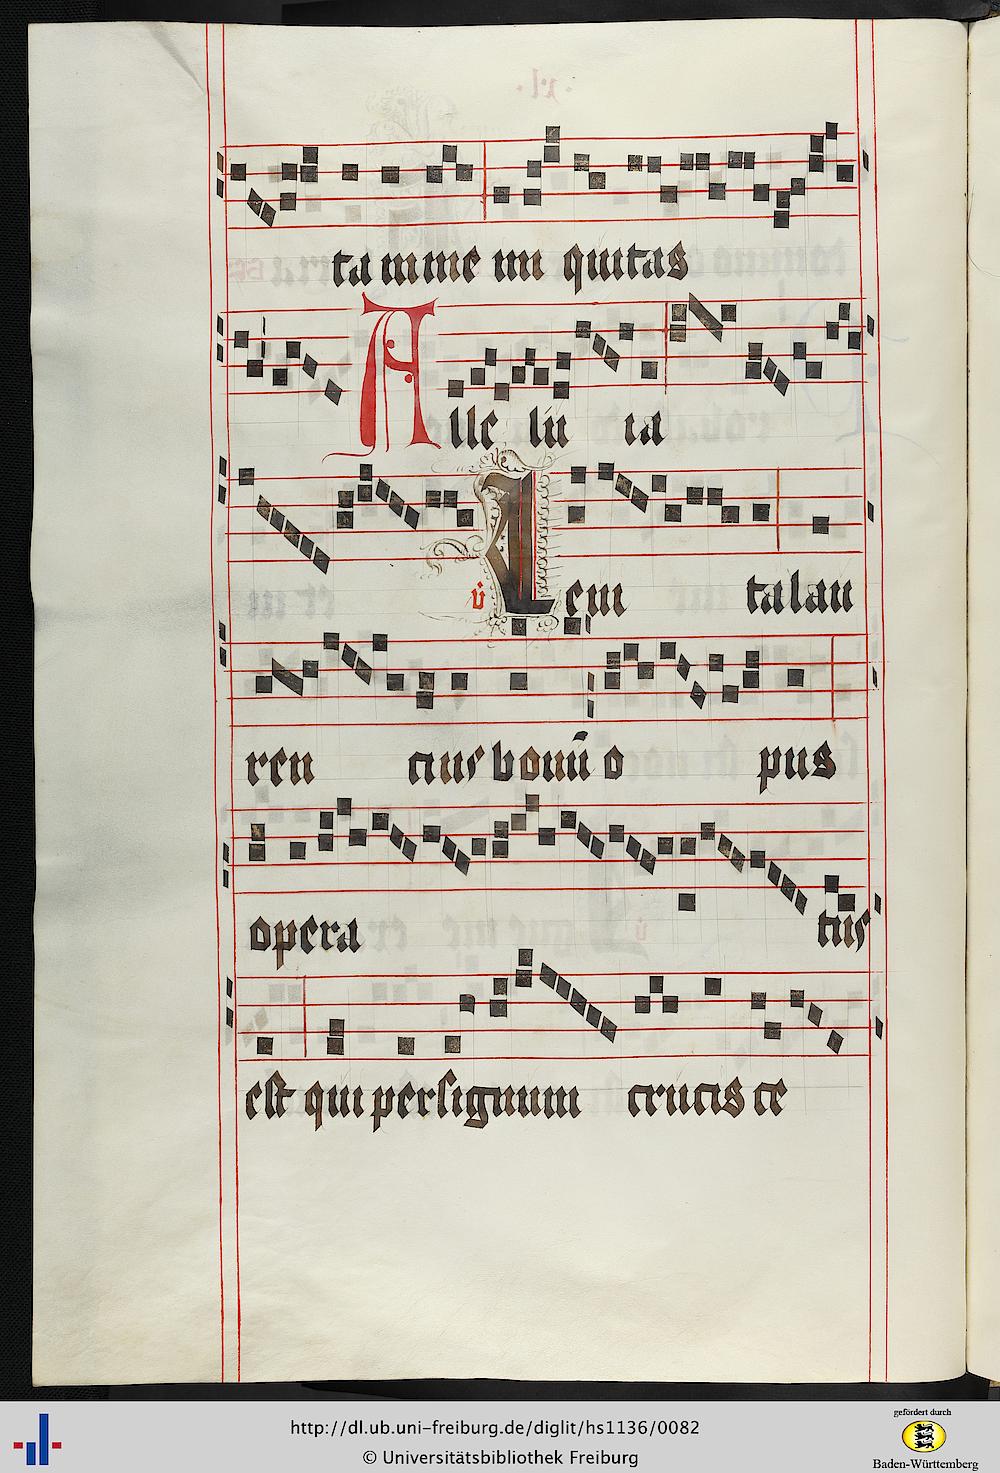 ta in me ini quitas
Alle lu ia
v̉ Lau
ren cius bonū o pus
opera tus
est qui per signum crucis ce
http://dl.ub.uni-freiburg.de/diglit/hs1136/0082
© Universitätsbibliothek Freiburg
gefördert durch
Baden-Württemberg